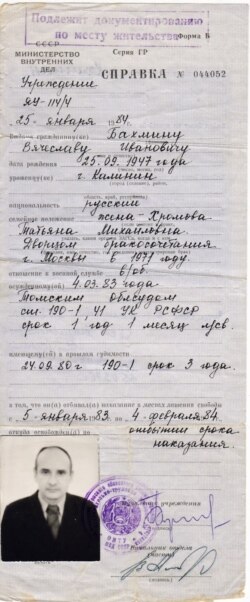 Подлежит документированию
по месту жительства
Форма Б
СССР
МИНИСТЕРСТВО
ВНУТРЕННИХ
ДЕЛ
Серия ГР
СПРАВКА № 044052
Учреждение
ЯУ-114/4
25 января 1984.
Выдана гражданину(ке) Бахмину
Вячеславу Ивановичу
дата рождения 25.09.1947 года
уроженцу(ке) г. Калинин
национальность русский
семейное положение жена-Хромова
Татьяна Михайловна
Дворцом бракосочетания
г. Москвы в 1971 году.
отношение к военной службе в/об.
осужденному(ой) 4.03.83 года
Томским облсудом
ст. 190-1, 41 УК РСФСР
срок 1 год 1 месяц л/св.
имеющему(ей) в прошлом судимости
24.09.80г 190-1 срок 3 года.
в том, что он(а) отбывал(а) наказание в местах лишения свободы
с 5 января 83. по 4 февраля 84.
откуда освобожден(а) по отбытии срока
наказания.
учреждения
Начальник отдела
(части)
(подпись)